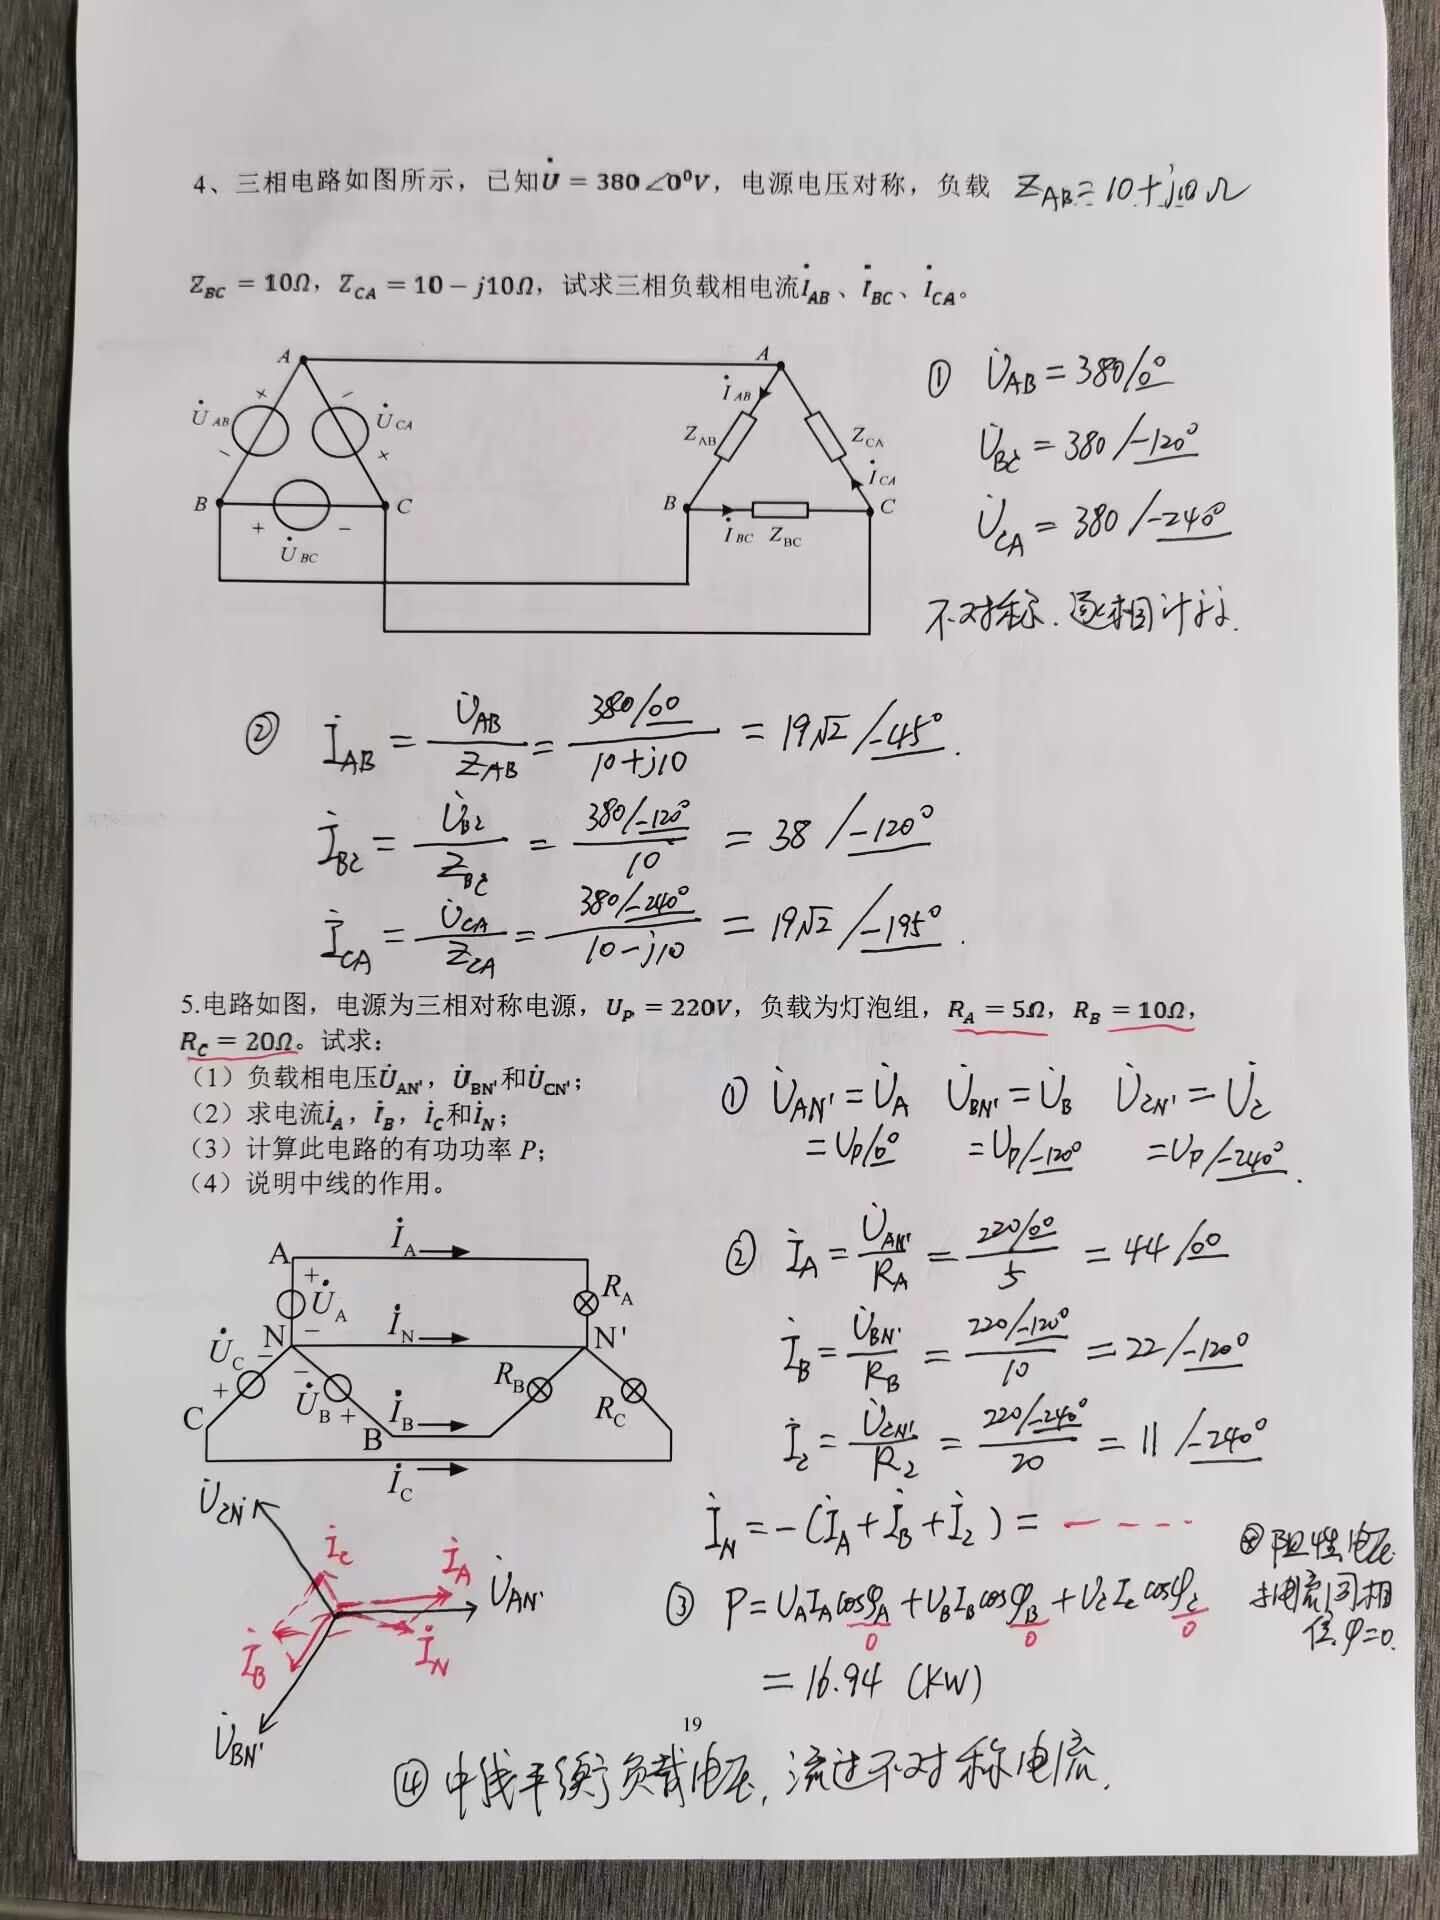 4、三相电路如图所示，已知U̇ = 380∠0⁰V，电源电压对称，负载 Z_AB = 10 + j10 Ω
Z_BC = 10Ω，Z_CA = 10 − j10Ω，试求三相负载相电流İ_AB、İ_BC、İ_CA。
A
A
U̇_AB
+
−
−
+
U̇_CA
B
C
+
−
U̇_BC
İ_AB
Z_AB
Z_CA
İ_CA
B
C
İ_BC Z_BC
① U̇_AB = 380/0°
U̇_BC = 380/−120°
U̇_CA = 380/−240°
不对称.逐相计算.
② İ_AB = U̇_AB/Z_AB = 380/0° / (10+j10) = 19√2 /−45°.
İ_BC = U̇_BC/Z_BC = 380/−120° / 10 = 38 /−120°
İ_CA = U̇_CA/Z_CA = 380/−240° / (10−j10) = 19√2 /−195°.
5.电路如图，电源为三相对称电源，U_P = 220V，负载为灯泡组，R_A = 5Ω，R_B = 10Ω，
R_C = 20Ω。试求：
（1）负载相电压U̇_AN'，U̇_BN'和U̇_CN'；
（2）求电流İ_A，İ_B，İ_C和İ_N；
（3）计算此电路的有功功率 P；
（4）说明中线的作用。
① U̇_AN' = U̇_A U̇_BN' = U̇_B U̇_CN' = U̇_C
= U_P/0° = U_P/−120° = U_P/−240°.
② İ_A = U̇_AN'/R_A = 220/0° / 5 = 44/0°
İ_B = U̇_BN'/R_B = 220/−120° / 10 = 22/−120°
İ_C = U̇_CN'/R_C = 220/−240° / 20 = 11/−240°
İ_N = −(İ_A + İ_B + İ_C) = − − − −
A
İ_A
+
U̇_A
−
R_A
N
İ_N
N'
U̇_C
−
+
−
U̇_B
+
R_B
R_C
C
B
İ_B
İ_C
U̇_CN'
İ_C
İ_A
U̇_AN'
İ_B
İ_N
U̇_BN'
③ P = U_A I_A cosφ_A + U_B I_B cosφ_B + U_C I_C cosφ_C
0 0 0
= 16.94 (KW)
⊗阻性,电压
与电流同相
位,φ=0.
19
④ 中线平衡负载电压, 流过不对称电流.